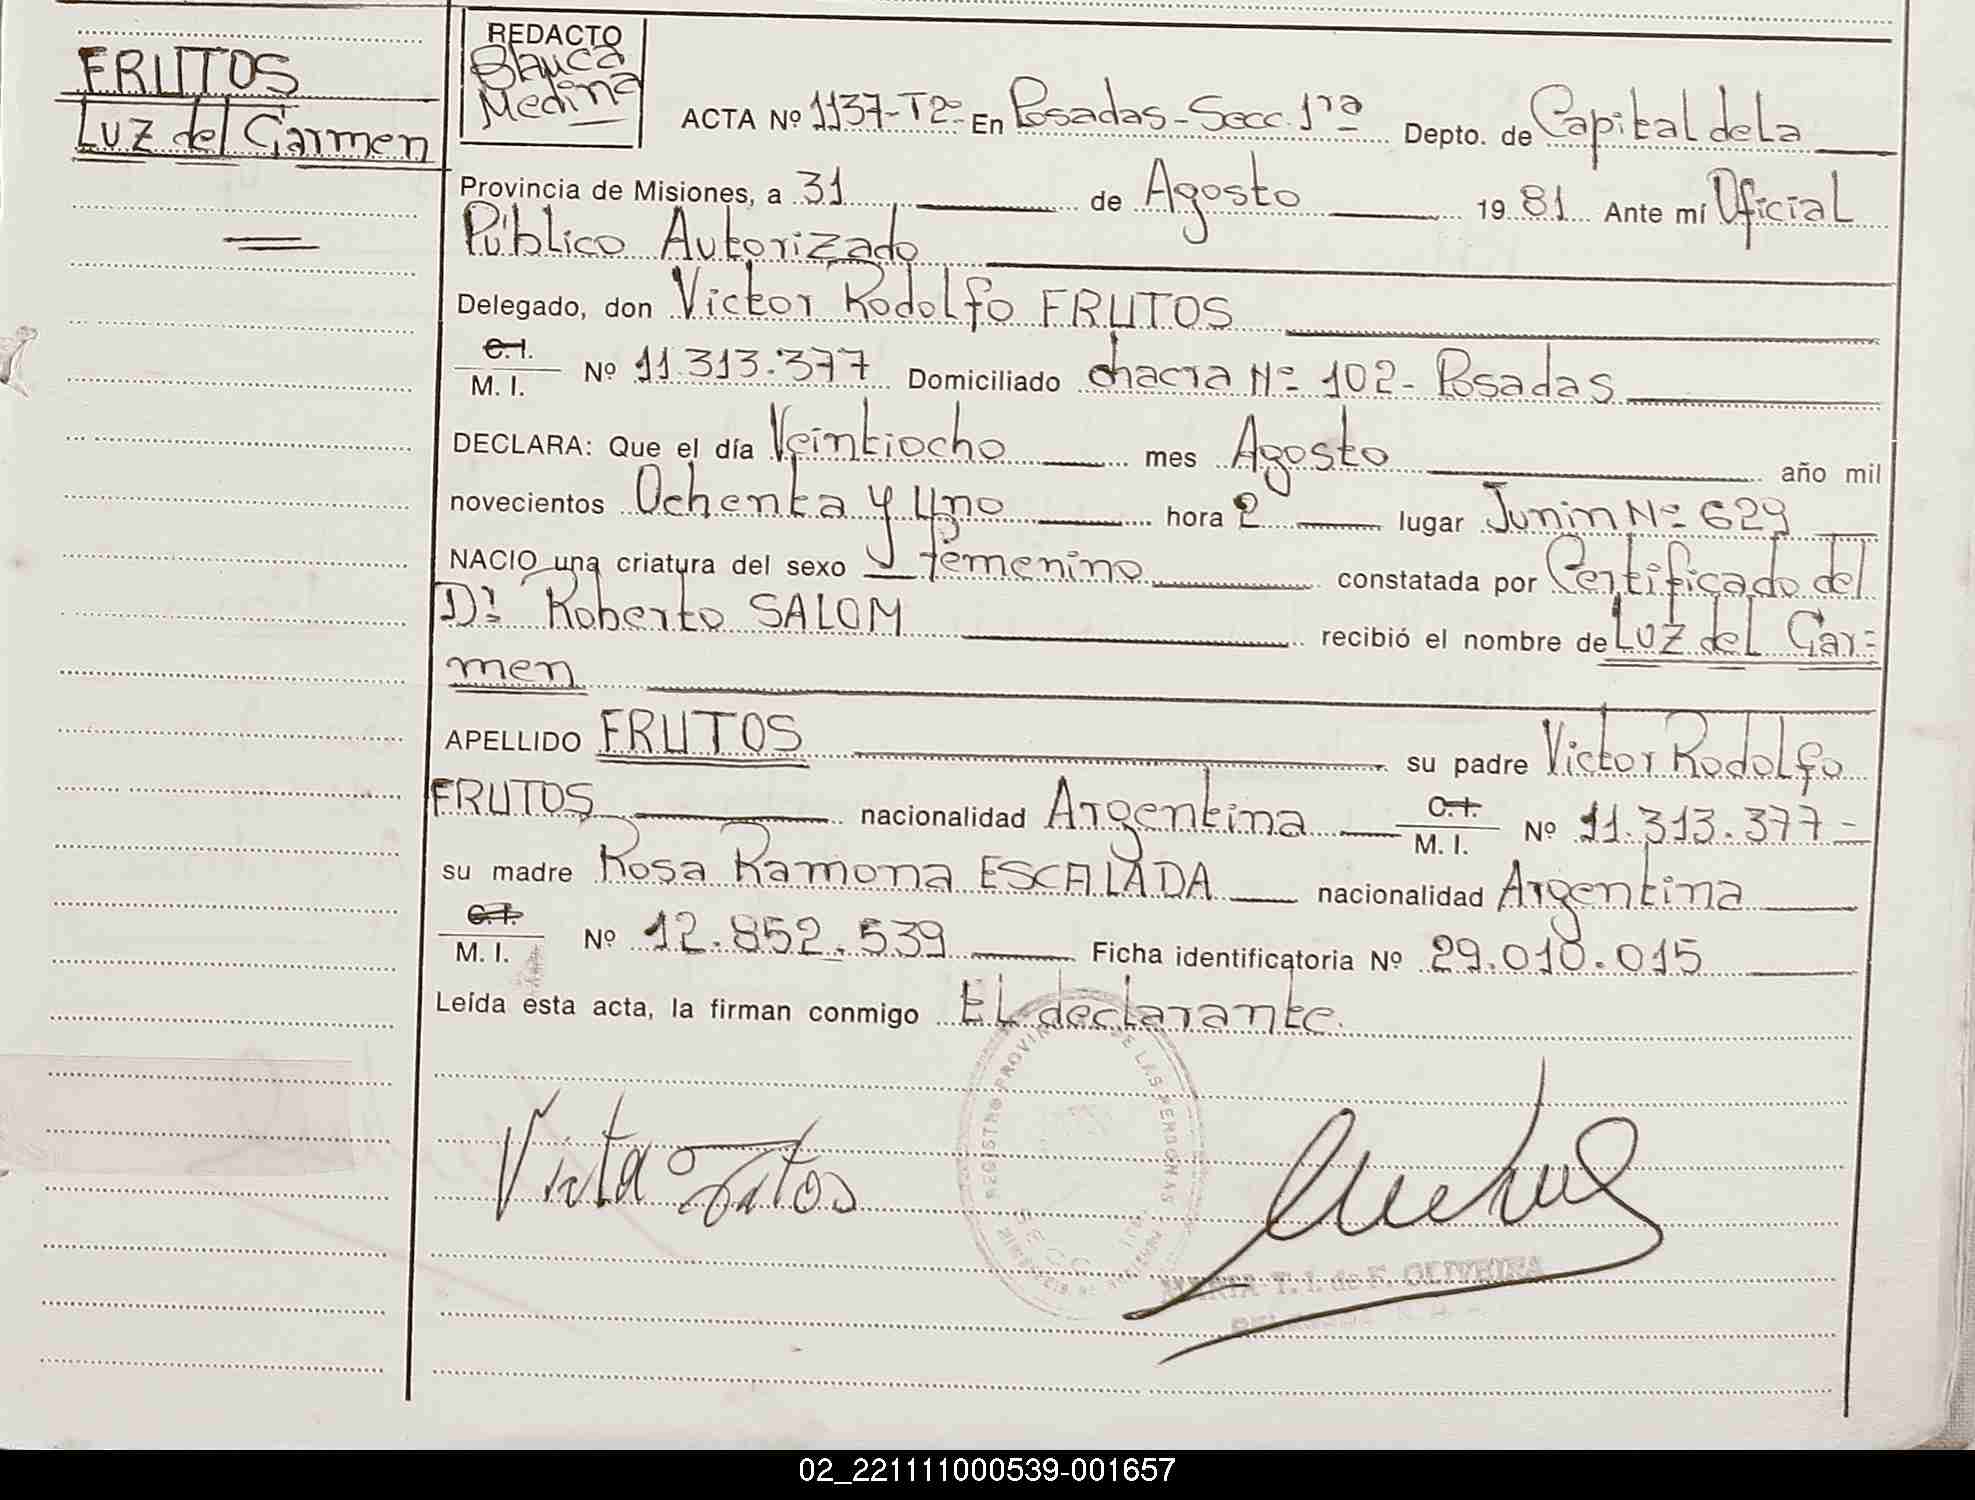 FRUTOS
Luz del Carmen
REDACTO
Blanca
Medina
ACTA Nº 1137-Tº2- En Posadas-Secc. 1ra Depto. de Capital de la
Provincia de Misiones, a 31 de Agosto 1981 Ante mí Oficial
Público Autorizado
Delegado, don Victor Rodolfo FRUTOS
C.I.
M. I. Nº 11.313.377 Domiciliado chacra Nº 102- Posadas
DECLARA: Que el día Veintiocho mes Agosto año mil
novecientos Ochenta y Uno hora 2 lugar Junin Nº 629
NACIO una criatura del sexo femenino constatada por Certificado del
Dr. Roberto SALOM recibió el nombre de Luz del Car=
men
APELLIDO FRUTOS su padre Victor Rodolfo
FRUTOS nacionalidad Argentina C.I. M. I. Nº 11.313.377-
su madre Rosa Ramona ESCALADA nacionalidad Argentina
C.I.
M. I. Nº 12.852.539 Ficha identificatoria Nº 29.010.015
Leída esta acta, la firman conmigo El declarante.
REGISTRO PROVINCIAL DE LAS PERSONAS
SECC
T. I. de F. OLIVEIRA
02_221111000539-001657